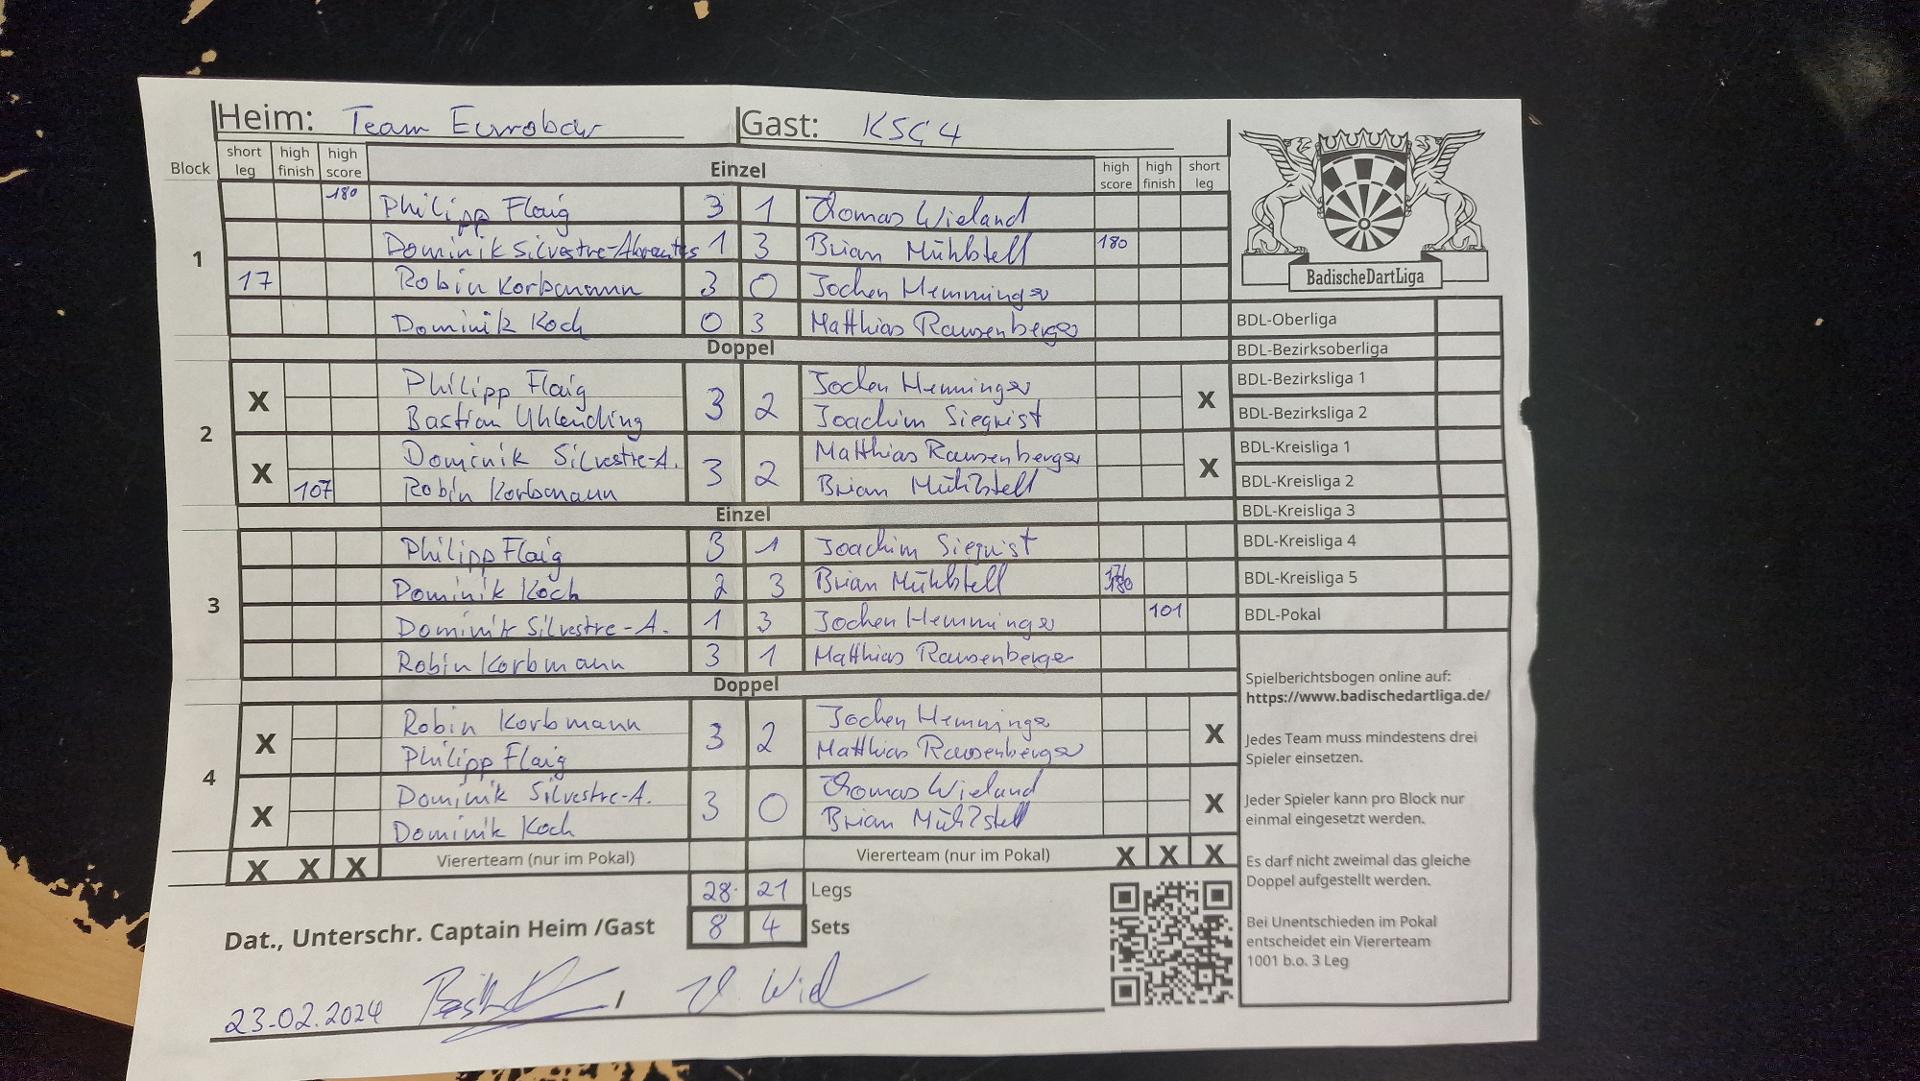 Heim: Team Eurobar Gast: KSC 4
Block short leg high finish high score Einzel high score high finish short leg
1
180 Philipp Flaig 3 1 Thomas Wieland
Dominik Silvestre-Abrantes 1 3 Brian Mühlstell 180
17 Robin Korbmann 3 0 Jochen Hemminger
Dominik Koch 0 3 Matthias Rausenberger
Doppel
2
X Philipp Flaig 3 2 Jochen Hemminger X
Bastian Uhlending Joachim Siegrist
X Dominik Silvestre-A. 3 2 Matthias Rausenberger X
107 Robin Korbmann Brian Mühlstell
Einzel
3
Philipp Flaig 3 1 Joachim Siegrist
Dominik Koch 2 3 Brian Mühlstell 180
Dominik Silvestre-A. 1 3 Jochen Hemminger 101
Robin Korbmann 3 1 Matthias Rausenberger
Doppel
4
X Robin Korbmann 3 2 Jochen Hemminger X
Philipp Flaig Matthias Rausenberger
X Dominik Silvestre-A. 3 0 Thomas Wieland X
Dominik Koch Brian Mühlstell
X X X Viererteam (nur im Pokal) Viererteam (nur im Pokal) X X X
28 21 Legs
8 4 Sets
Dat., Unterschr. Captain Heim /Gast
23.02.2024 /
BadischeDartLiga
BDL-Oberliga
BDL-Bezirksoberliga
BDL-Bezirksliga 1
BDL-Bezirksliga 2
BDL-Kreisliga 1
BDL-Kreisliga 2
BDL-Kreisliga 3
BDL-Kreisliga 4
BDL-Kreisliga 5
BDL-Pokal
Spielberichtsbogen online auf:
https://www.badischedartliga.de/
Jedes Team muss mindestens drei
Spieler einsetzen.
Jeder Spieler kann pro Block nur
einmal eingesetzt werden.
Es darf nicht zweimal das gleiche
Doppel aufgestellt werden.
Bei Unentschieden im Pokal
entscheidet ein Viererteam
1001 b.o. 3 Leg